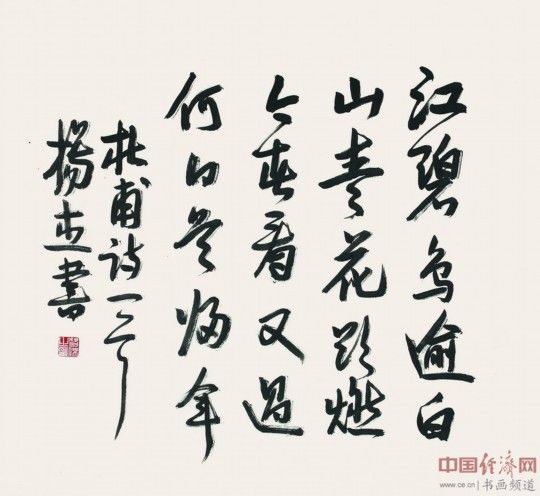 江碧鸟逾白
山青花欲燃
今春看又過
何日是归年
杜甫诗一首
楊 書
中国经济网
www.ce.cn | 书画频道